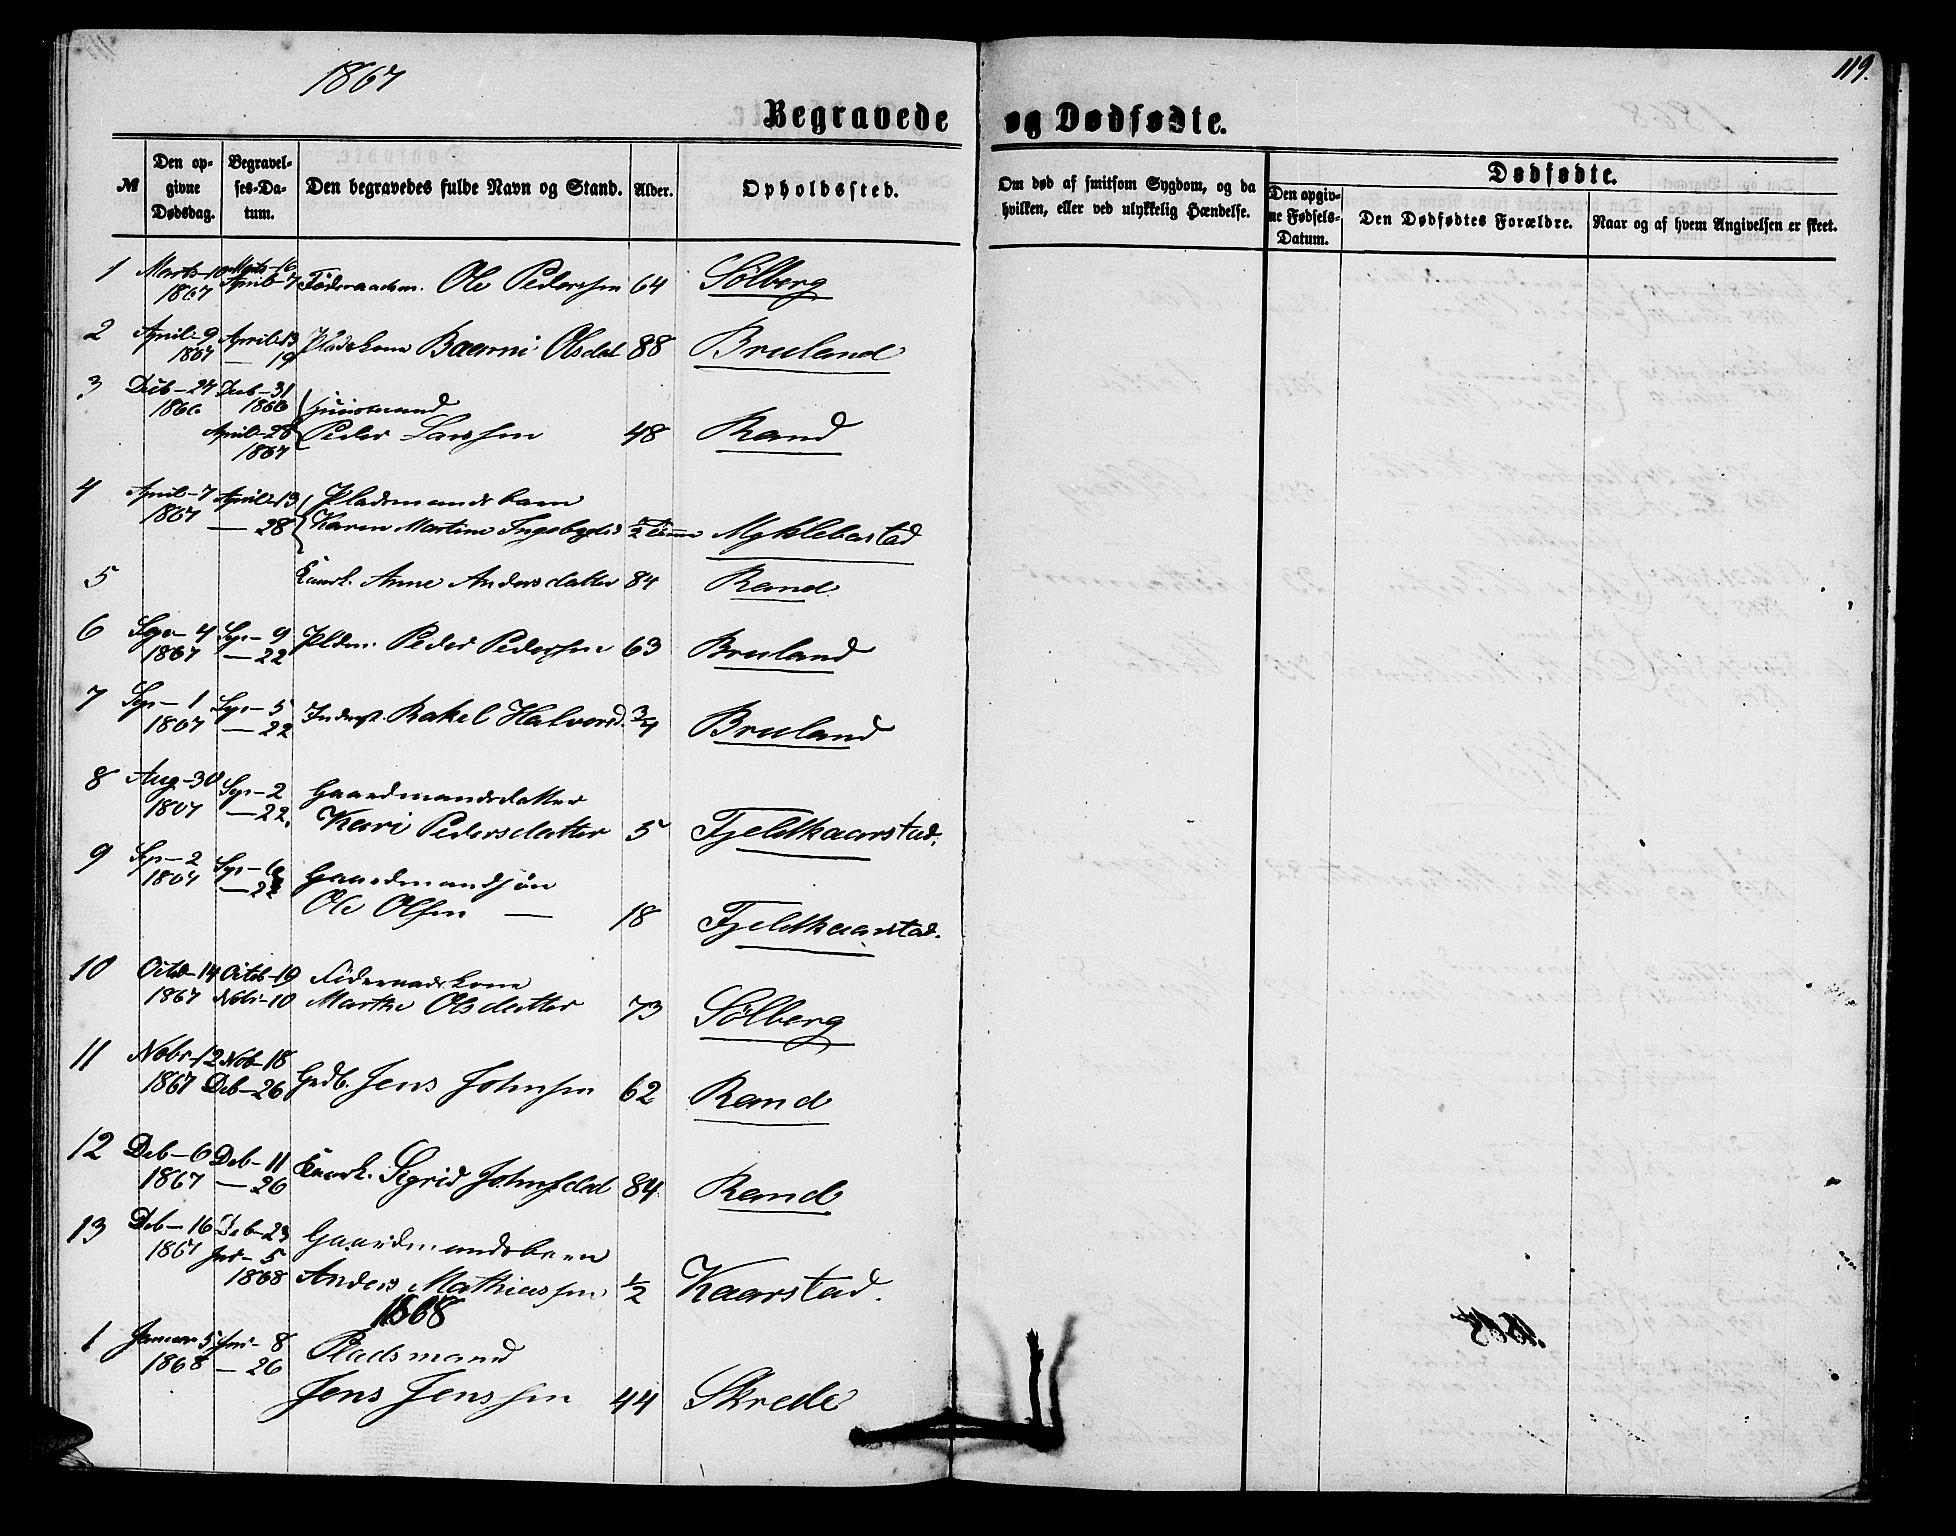 1867
119.
Begravede og Dødfødte.
№
Den opgivne Dødsdag.
Begravelses-Datum.
Den begravedes fulde Navn og Stand.
Alder.
Opholdssted.
Om død af smitsom Sygdom, og da hvilken, eller ved ulykkelig Hændelse.
Dødfødte.
Den opgivne Fødsels-Datum.
Den Dødfødtes Forældre.
Naar og af hvem Angivelsen er skeet.
1 Marts-10 1867 Marts-16 April-7 Føderaadsm. Ole Pederssen 64 Sølberg
2 April-9 1867 April-13 — 19 Pladskone Olsdat 88 Bruland
3 Deeb-27 1866 Deeb-31 1866 Huusmand
April-28 1867 Peder Larssen 48 Rand
4 April-7 1867 April-13 — 28 Pladsmandsbarn
Karen Martine Ingebrgtsd Myklebustad
5 Anne Andersdatter 84 Rand
6 Sep-4 1867 Sep-9 — 22 Pldm. Peder Pederssen 63 Bruland
7 Sep-1 1867 Sep-5 — 22 Inderst. Rakel Halvorsd. 3/4 Bruland
8 Aug-30 1867 Sep-2 — 22. Gaardmandsdatter
Kari Pedersdatter 5 Fjeldkaarstad.
9 Sep-2 1867 Sep-6 — 22 Gaardmandssøn
Ole Olssen — 18 Fjeldkaarstad.
10 Octob-14 1867 Octob-19 Nobr-10 Føderaadskone
Marthe Olsdatter 73 Sølberg
11 Nobr-12 1867 Nob-18 Deb-26 Grdb. Jens Johnssen 62 Rand
12 Deb-6 1867 Deb-11 — 26 Sigrid Johnsdat 84. Rand
13 Deb-16 1867 Deb-23 Jnr-5 1868 Gaardmandsbarn
Anders Mathiassen 1/2 Kaarstad.
1868
1 Januar 5 1868 Jnr-8 — 26 Pladsmand
Jens Jenssen 44 Skrede